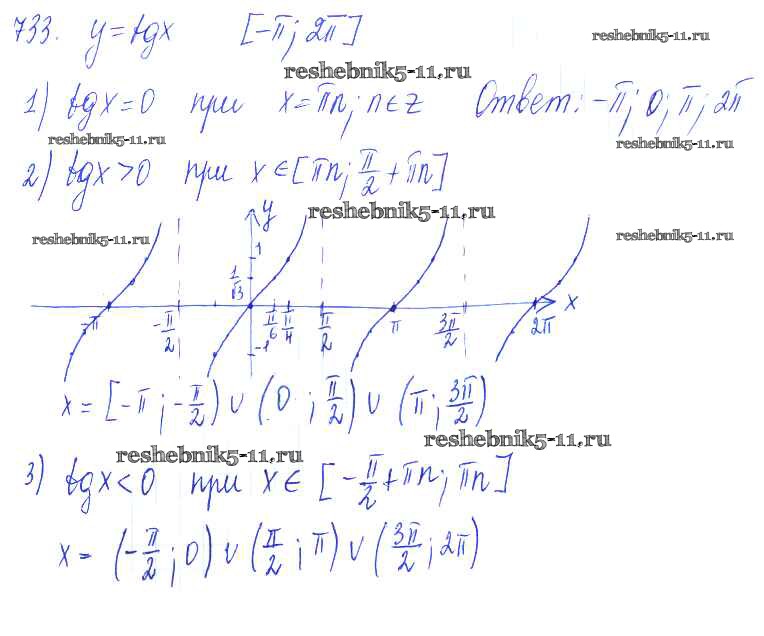 733. y = tgx [-π; 2π]
reshebnik5-11.ru
reshebnik5-11.ru
1) tgx = 0 при x = πn; n ∈ z Ответ: -π; 0; π; 2π
reshebnik5-11.ru
reshebnik5-11.ru
2) tgx > 0 при x ∈ [πn; π/2 + πn]
reshebnik5-11.ru
reshebnik5-11.ru
reshebnik5-11.ru
y
1
1/√3
-π -π/2 π/6 π/4 π/2 π 3π/2 2π x
-1
x = [-π; -π/2) ∪ (0; π/2) ∪ (π; 3π/2)
reshebnik5-11.ru
reshebnik5-11.ru
3) tgx < 0 при x ∈ [-π/2 + πn; πn]
x = (-π/2; 0) ∪ (π/2; π) ∪ (3π/2; 2π)